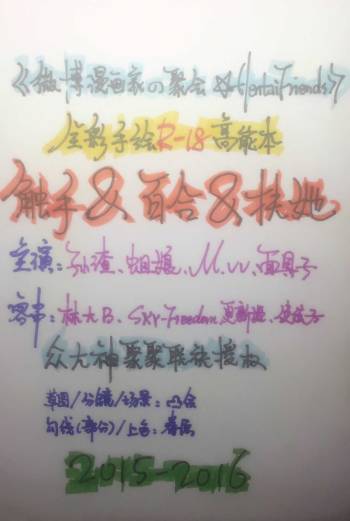 《微博漫画家の聚会 HentaiFriends》
全彩手绘R-18高能本
触手&百合&扶她
主演：渣、蛆娘、M.W、面具子
客串：林大B、SKY-Freedom、更新姬、
众大神聚聚联族授权
草图/分镜/场景：凸会
勾线(部分)/上色：春
2015-2016